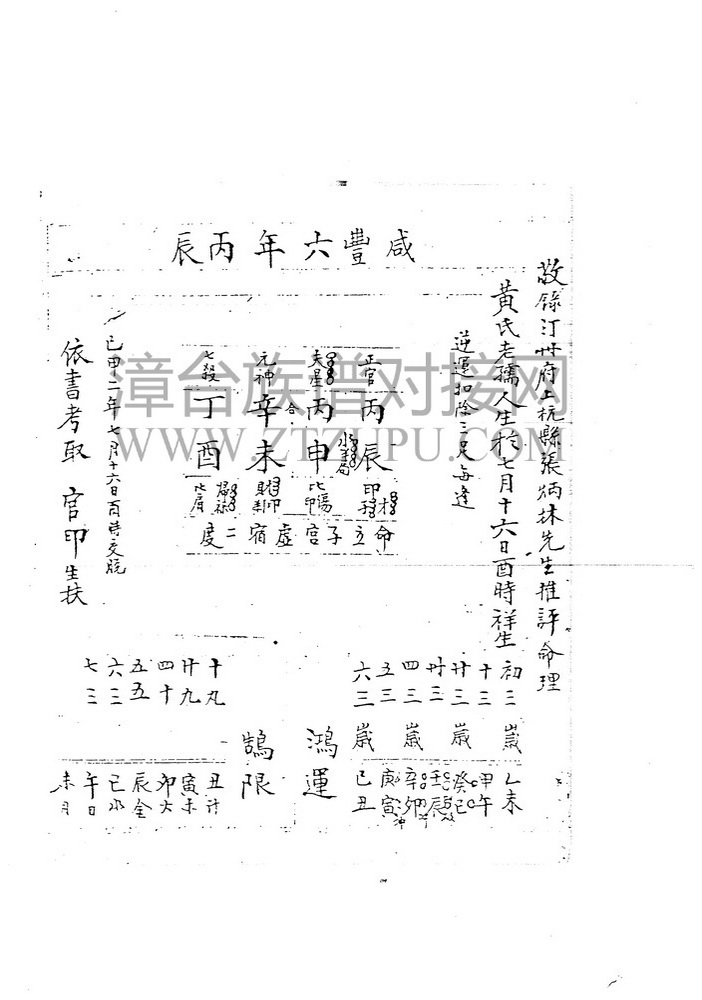 敬錄汀州府上杭縣張炳林先生推評命理
黃氏老孺人生於七月十六日酉時祥生
咸豐六年丙辰
逆運扣除三足每逢
正官 夫星 元神 七殺
丙 丙 合 辛 丁
辰 申 未 酉
命立子宮虛宿二度
己甲十二年七月十六日酉時交脫
依書考取 官印生扶
初三歲 乙未
十三 甲午
廿三歲 癸巳
卅三 壬辰
四三歲 辛卯
五三 庚寅
六三歲 己丑
鴻運
鵠限
十九 丑計
廿九 寅木
四十 卯火
五五 辰金
六三 巳水
七三 午日
未月
漳台族谱对接网
WWW.ZTZUPU.COM